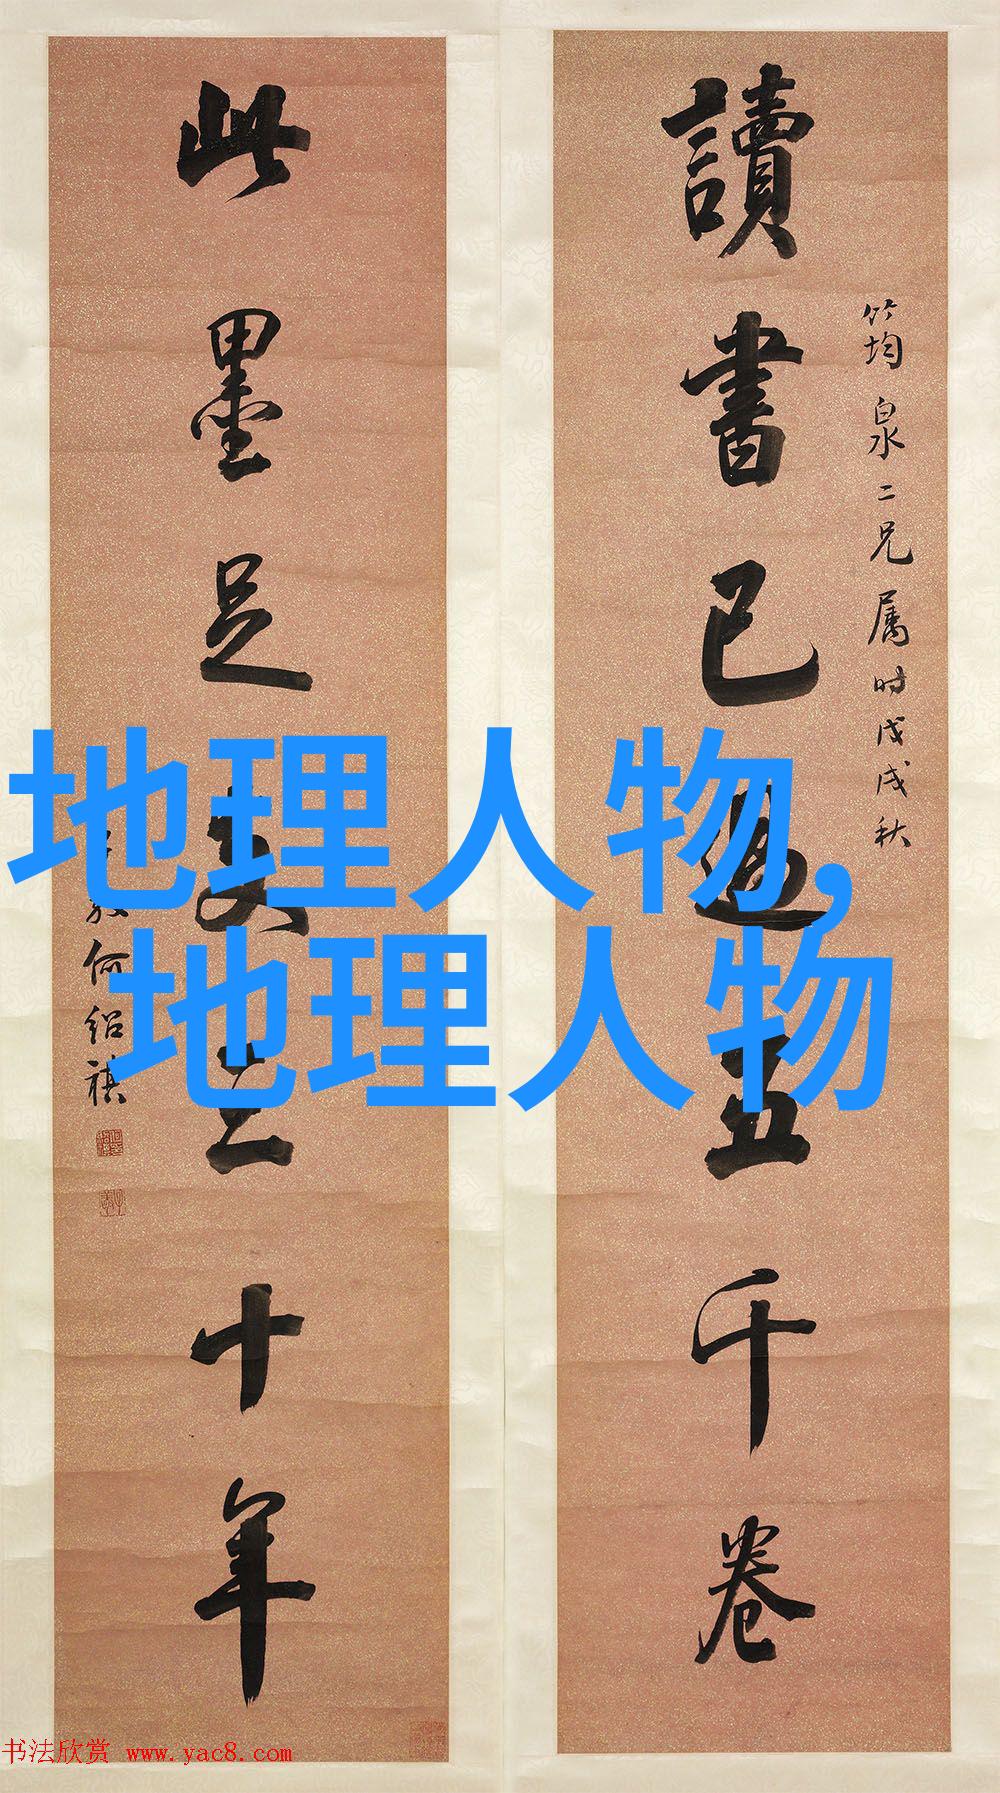 讀書已過五千卷
筠泉二兄属时戊戌秋
此墨足支三十年
何紹祺
地理人物,
地理人物
书法欣赏 www.yac8.com